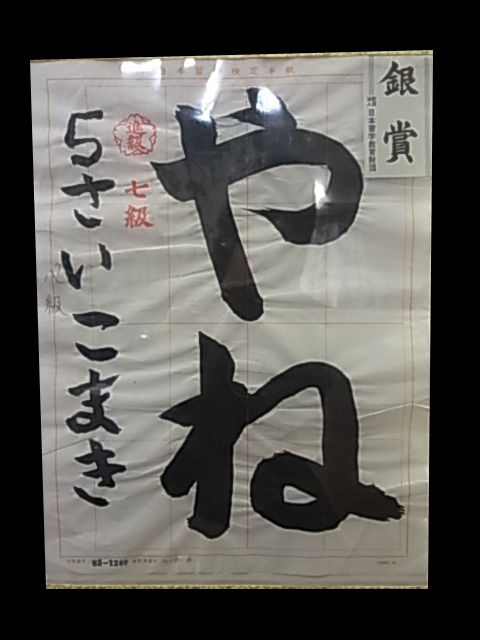 銀賞
日本習字教育財団
やね
進級
七級
5さいこまき
八級
検定半紙
85-1249